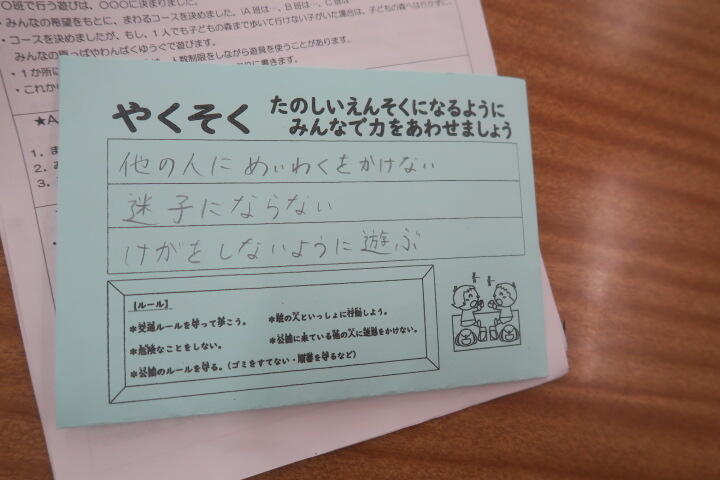 〇班で行う遊びは、〇〇〇に決まりました。
・みんなの希望をもとに、まわるコースを決めました。
・コースを決めましたが、もし、1人でも子どもの森まで歩いて行けない子がいた場合は、子どもの森へは行かずに、
みんなの原っぱやわんぱくゆうぐで遊びます。
人数制限をしながら遊具を使うことがあります。
・1か所に
に書きます。
・これから
★A
1．
2．
3．
やくそく
たのしいえんそくになるように
みんなで力をあわせましょう
他の人にめいわくをかけない
迷子にならない
けがをしないように遊ぶ
【ルール】
※交通ルールを守って歩こう。
※班の人といっしょに行動しよう。
※危険なことをしない。
※公園に来ている他の人に迷惑をかけない。
※公園のルールを守る。（ゴミをすてない・順番を守るなど）